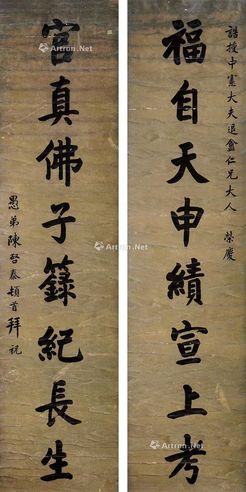 誥授中憲大夫退盦仁兄大人 榮慶
福自天申績宣上考
官真佛子籙紀長生
愚弟陳啓泰頓首拜祝
Artron.Net
Artron.Net
Artron.Net
Artron.Net
Artron.Net
Artron.Net